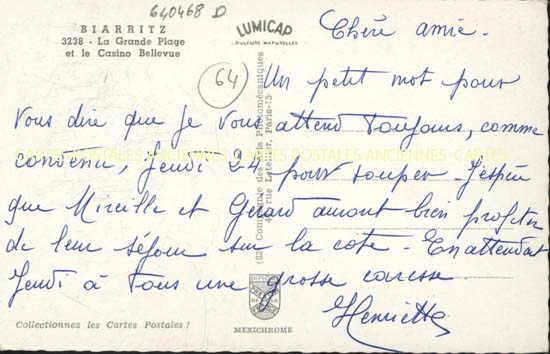 640468 D
BIARRITZ
3238 - La Grande Plage
et le Casino Bellevue
LUMICAP
COULEURS NATURELLES
64
Chère amie.
Un petit mot pour
vous dire que je vous attend toujours, comme
convenu, Jeudi 24 pour souper. J'espère
que Mireille et Gérard auront bien profiter
de leur séjour sur la côte. En attendant
Jeudi à tous une grosse caresse.
Henriette
(62) Compagnie des Arts Photomécaniques
rue Letellier, Paris-15
CARTES POSTALES ANCIENNES CARTES POSTALES ANCIENNES CARTES
Collectionnez les Cartes Postales !
MEXICHROME